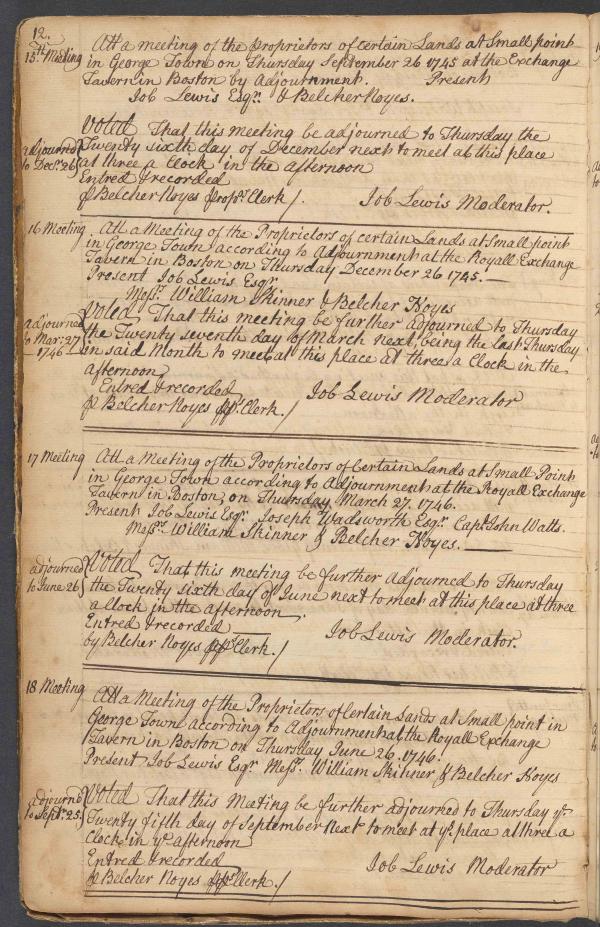 12.
15th Meeting
Att a meeting of the Proprietors of certain Lands at Small point
in George Town on Thursday September 26 1745 at the Exchange
Tavern in Boston by Adjournment. Present
Job Lewis Esqr. & Belcher Noyes.
adjourned
to Decr. 26
Voted That this meeting be adjourned to Thursday the
Twenty sixth day of December next to meet at this place
at three a Clock in the afternoon
Entred & recorded
Belcher Noyes Clerk /. Job Lewis Moderator.
16 Meeting
Att a Meeting of the Proprietors of certain Lands at Small point
in George Town according to Adjournment at the Royall Exchange
Tavern in Boston on Thursday December 26 1745.
Present Job Lewis Esqr.
Messr. William Skinner & Belcher Noyes
adjourned
to Mar: 27
1746
Voted That this meeting be further adjourned to Thursday
the Twenty seventh day of March next, being the last Thursday
in said Month to meet at this place at three a Clock in the
afternoon
Entred & recorded Job Lewis Moderator
Belcher Noyes Clerk. /
17 Meeting
Att a Meeting of the Proprietors of Certain Lands at Small Point
in George Town according to Adjournment at the Royall Exchange
Tavern in Boston, on Thursday March 27. 1746.
Present Job Lewis Esqr. Joseph Wadsworth Esqr. Capt. John Watts.
Messr. William Skinner & Belcher Noyes.
adjourned
to June 26
Voted That this meeting be further adjourned to Thursday
the Twenty sixth day of June next to meet at this place at three
a Clock in the afternoon.
Entred & recorded Job Lewis Moderator.
by Belcher Noyes Clerk. /
18 Meeting
Att a Meeting of the Proprietors of Certain Lands at Small point in
George Town according to Adjournment at the Royall Exchange
Tavern in Boston on Thursday June 26. 1746.
Present Job Lewis Esqr. Messr. William Skinner & Belcher Noyes
adjourned
to Septr. 25
Voted That this Meeting be further adjourned to Thursday ye.
Twenty fifth day of September Next to meet at ye. place at three a
Clock in ye. afternoon
Entred & recorded Job Lewis Moderator
Belcher Noyes Clerk. /